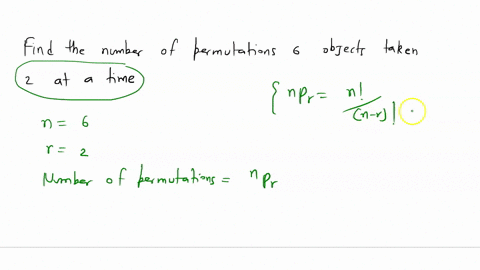 Find the number of permutations 6 objects taken
2 at a time
{ nPr = n! / (n-r)!
n = 6
r = 2
Number of permutations = nPr